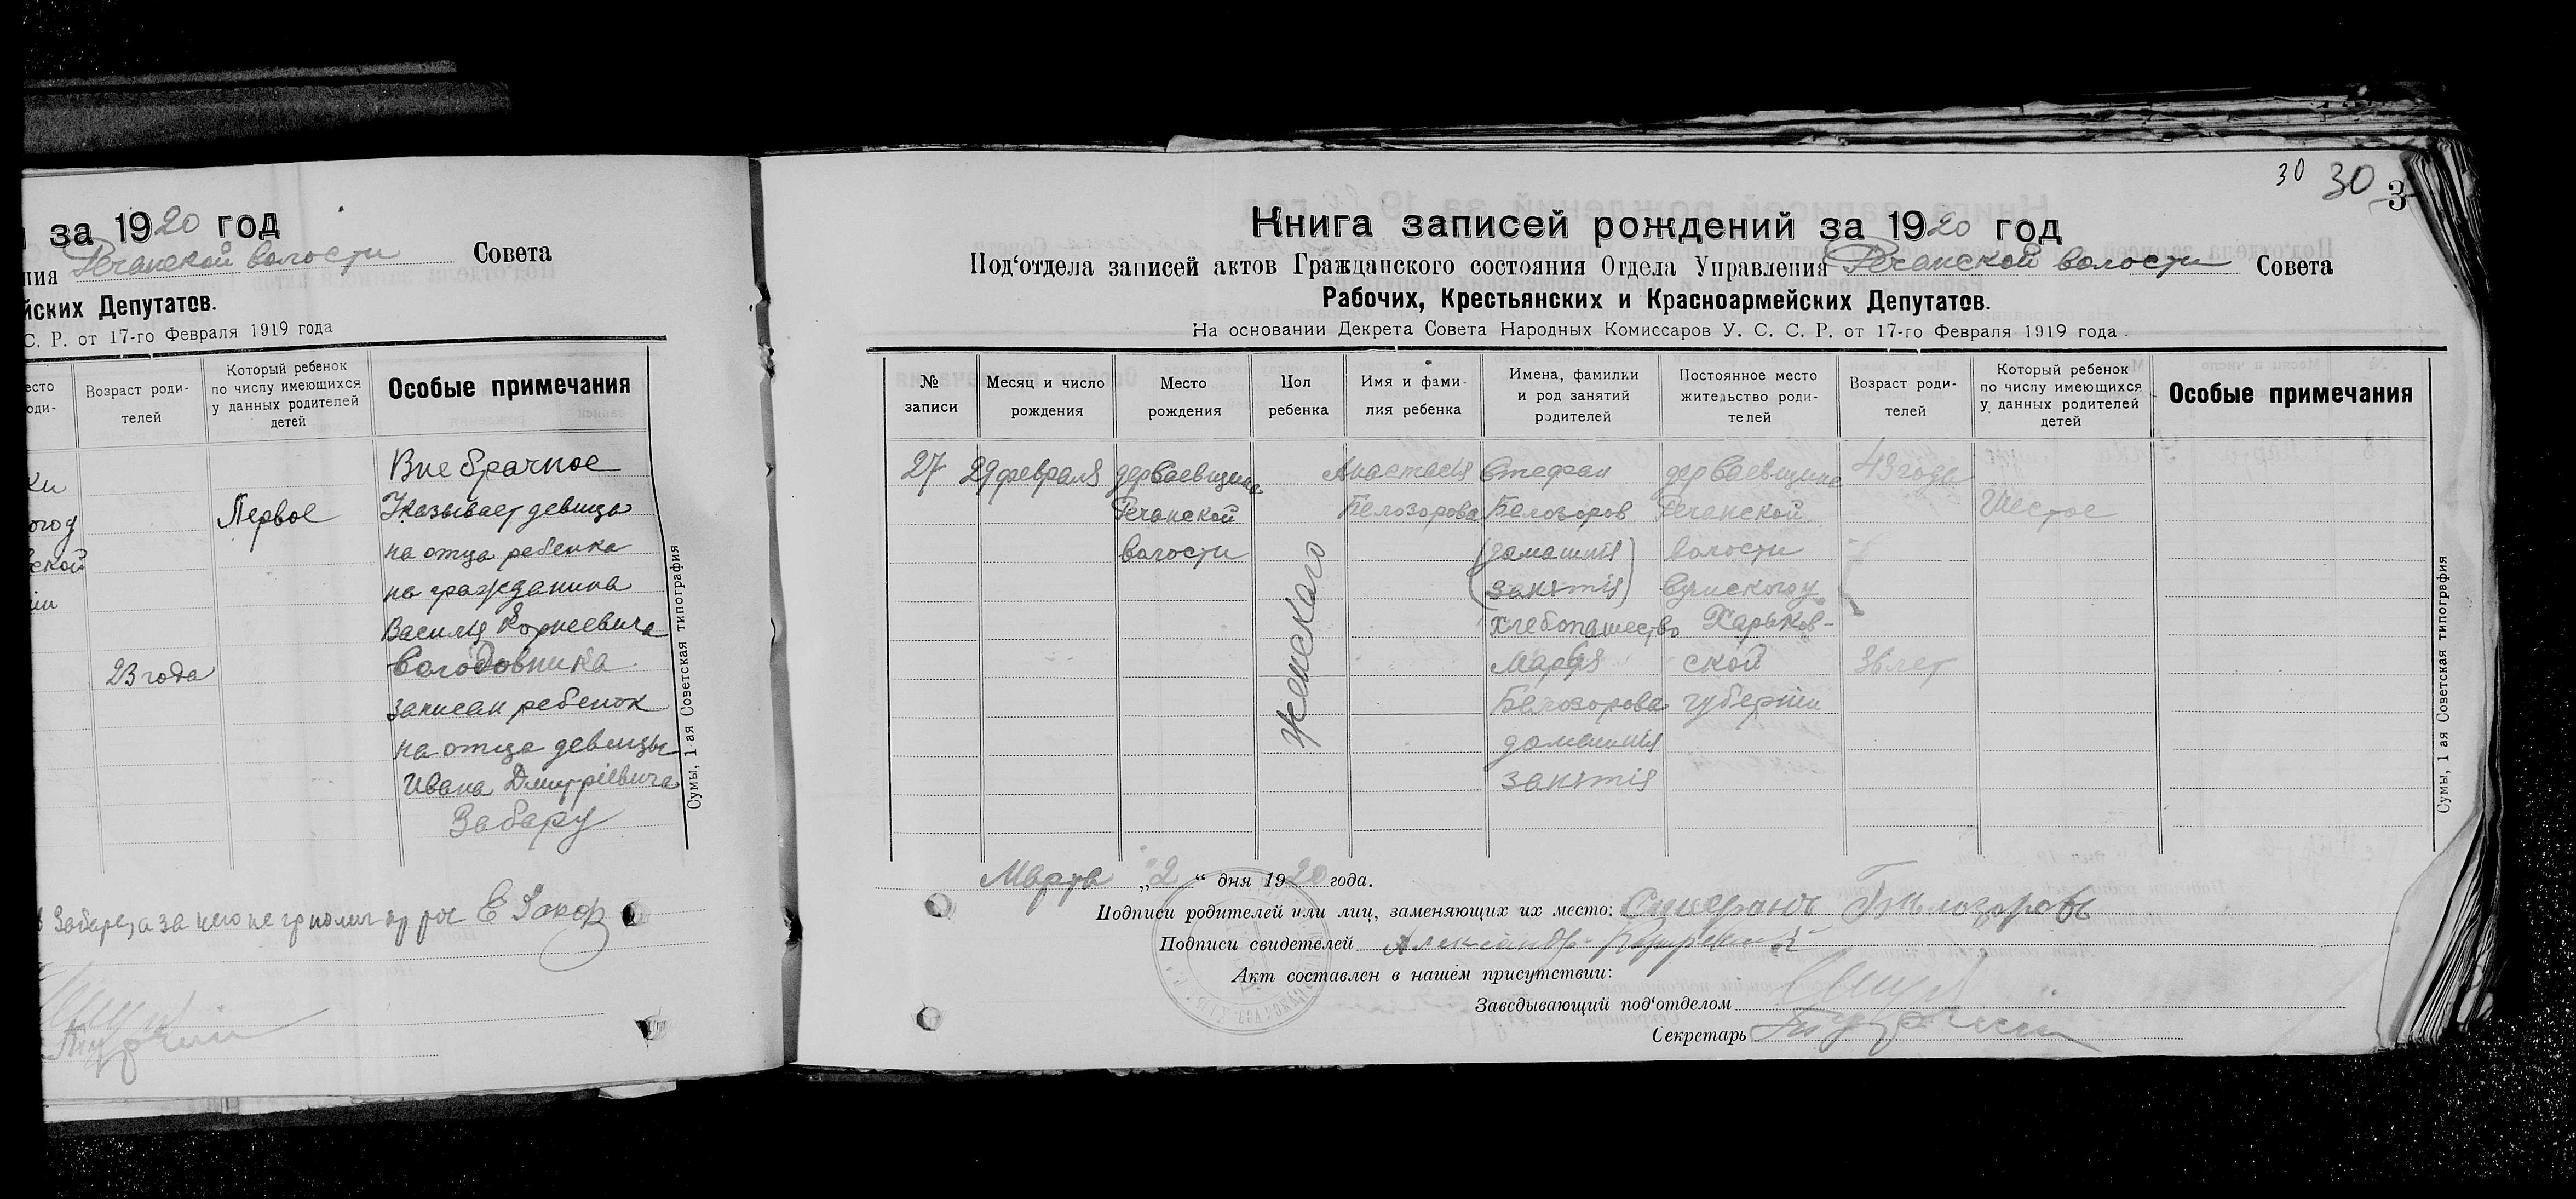 за 1920 год
ния Речанской волости Совета
йских Депутатов.
С. Р. от 17-го Февраля 1919 года
есто
оди-
Возраст роди-
телей
Который ребенок
по числу имеющихся
у данных родителей
детей
Особые примечания
ки
огод
ской
ии
23 года
Первое
Вне брачное
Указывает девица
на отца ребенка
на гражданина
Василія Корнеевича
записан ребенок
на отца девицы
Ивана Дмитріевича
Забару
Сумы, 1 ая Советская типография
30 30
3
Книга записей рождений за 1920 год
Под‘отдела записей актов Гражданского состояния Отдела Управления Речанской волости Совета
Рабочих, Крестьянских и Красноармейских Депутатов.
На основании Декрета Совета Народных Комиссаров У. С. С. Р. от 17-го Февраля 1919 года.
№
записи
Месяц и число
рождения
Место
рождения
Пол
ребенка
Имя и фами-
лия ребенка
Имена, фамилии
и род занятий
родителей
Постоянное место
жительство роди-
телей
Возраст роди-
телей
Который ребенок
по числу имеющихся
у данных родителей
детей
Особые примечания
27
29 февраля
дер Баевщина
Речанской
волости
Женскаго
Анастасія
Белозорова
Стефан
Белозоров
(домашнія)
(занятія)
хлебопашество
Марія
Белозорова
домашнія
занятія
дер Баевщине
Речанской
волости
Сумскогоу
Харьков-
ской
губерніи
43 года
36 лет
Шестое
Марта „2“ дня 1920 года.
Подписи родителей или лиц, заменяющих их место:
Подписи свидетелей Александр
Акт составлен в нашем присутствии:
Заведывающий под‘отделом
Секретарь
Сумы, 1 ая Советская типография